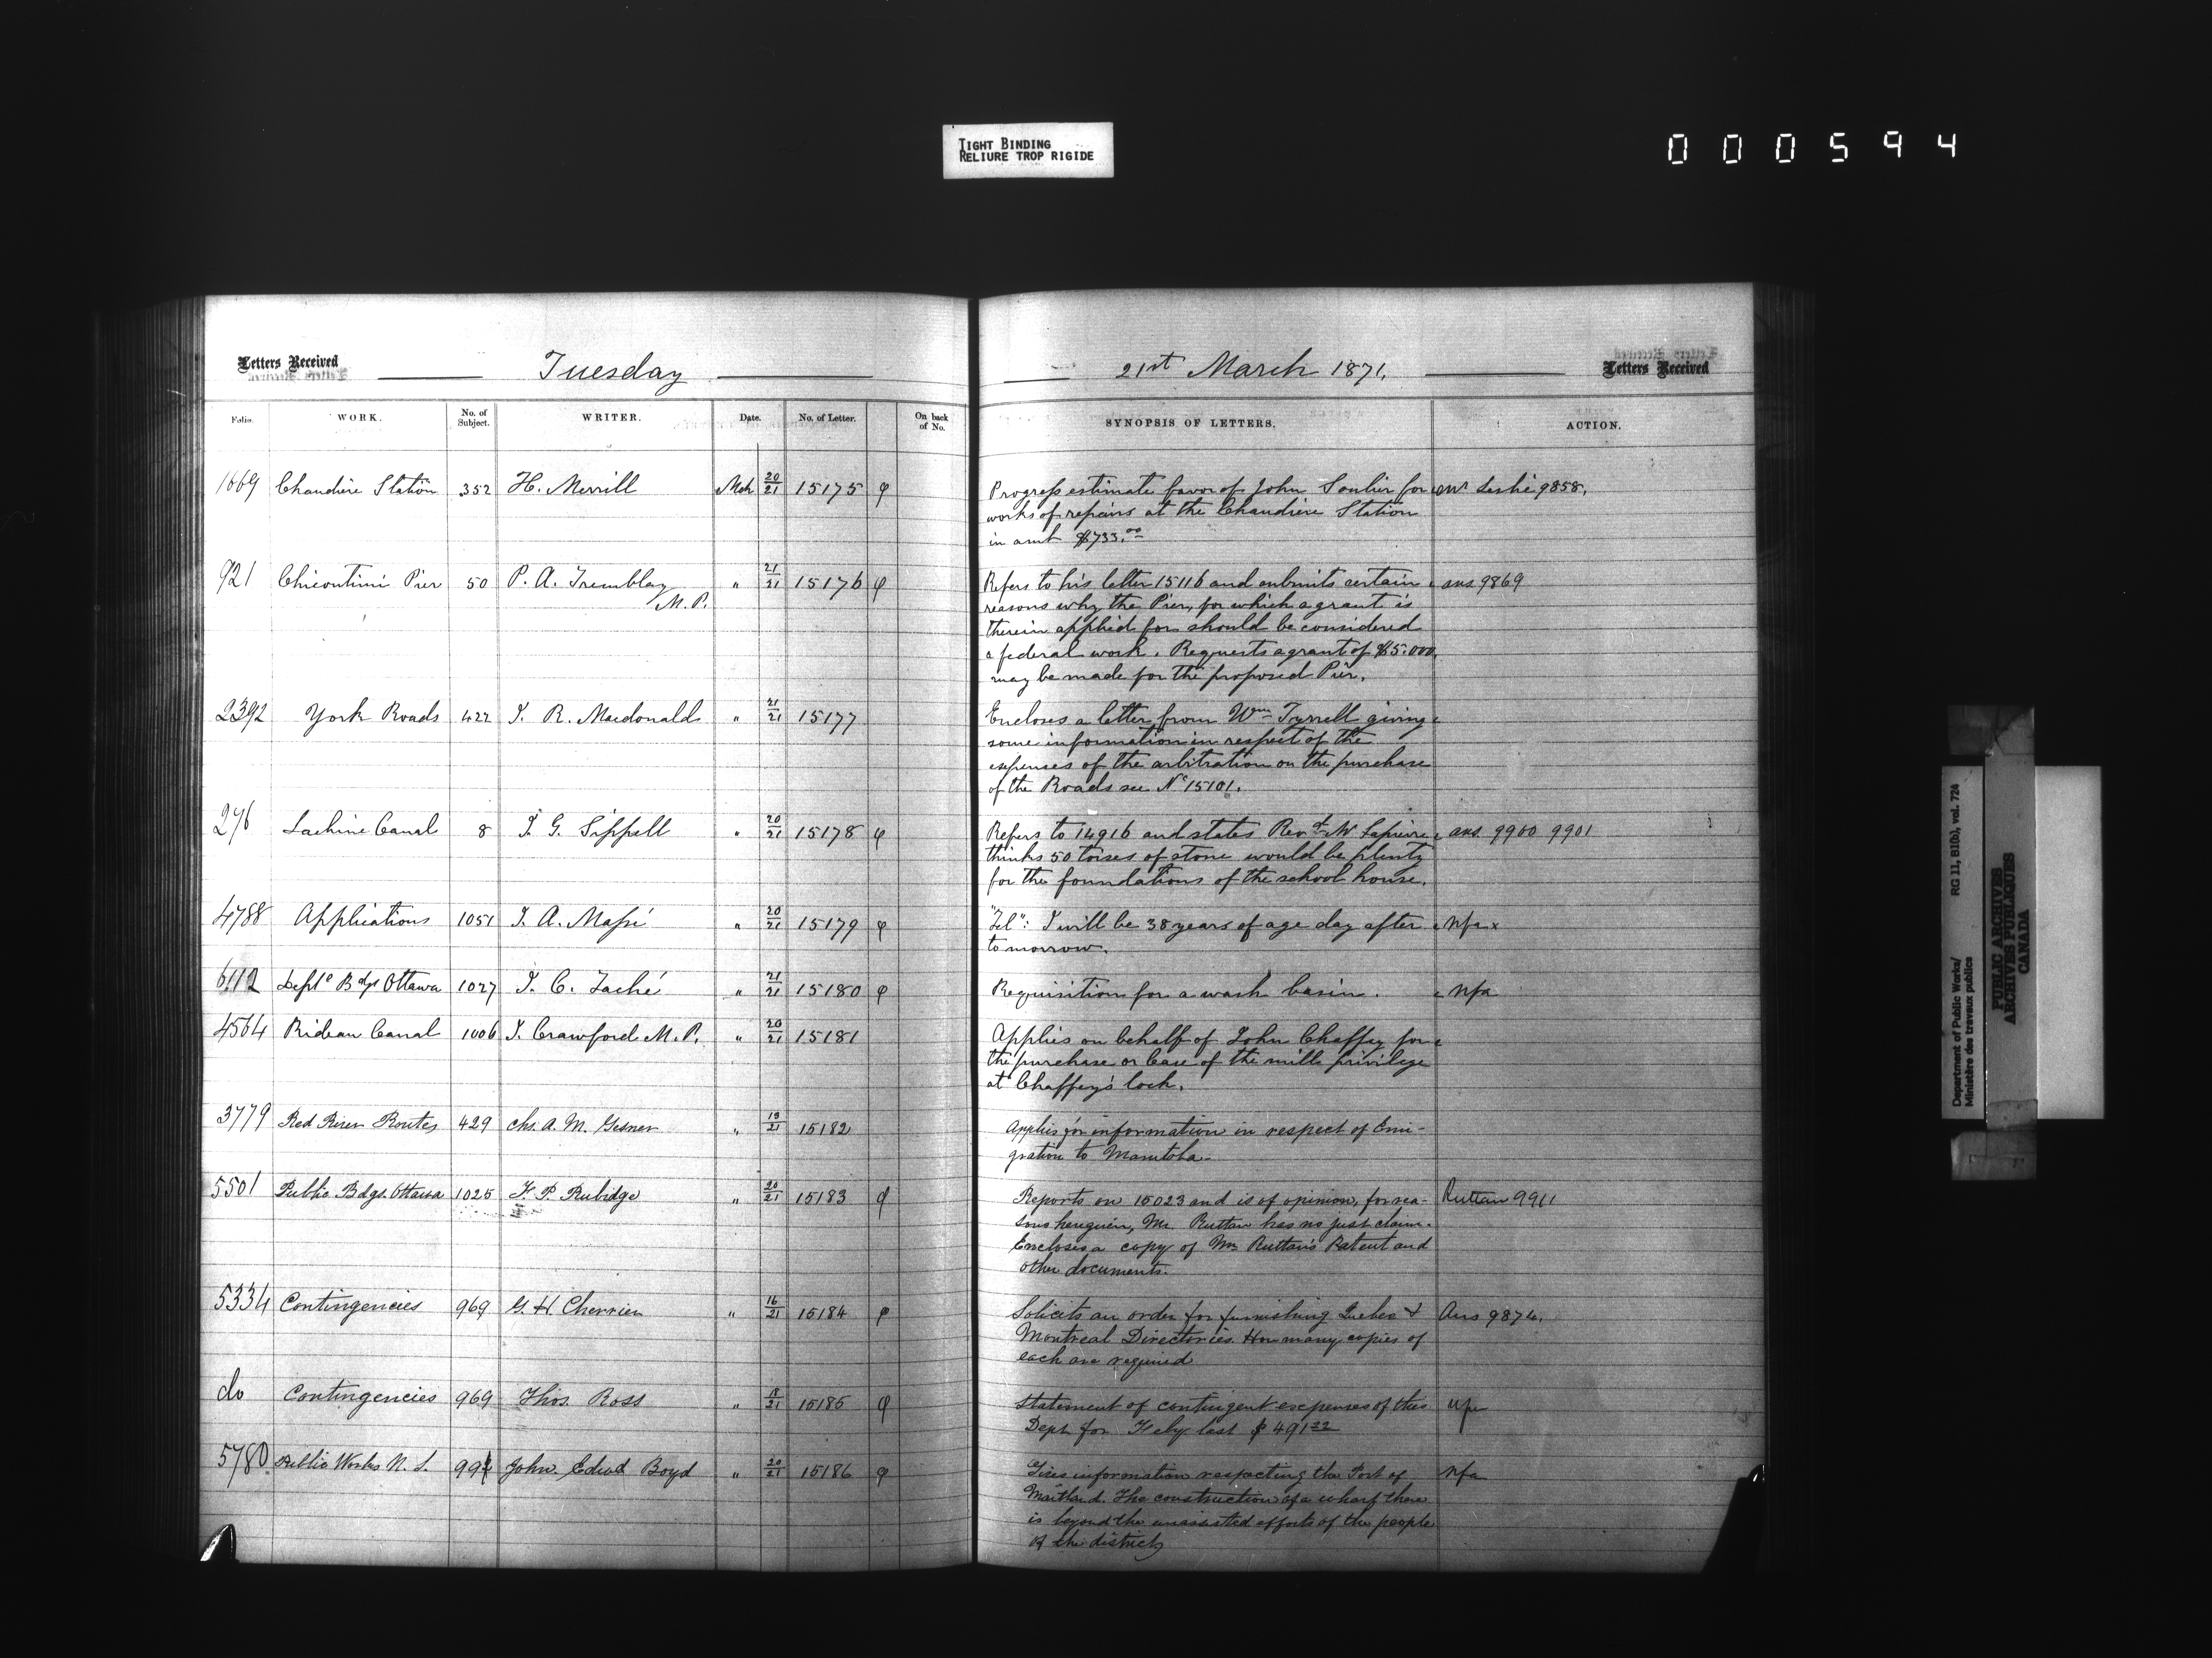 TIGHT BINDING
RELIURE TROP RIGIDE
000594
Letters Received
Tuesday
21st March 1871.
Letters Received
Folio. WORK. No. of Subject. WRITER. Date. No. of Letter. On back of No. SYNOPSIS OF LETTERS. ACTION.
1669 Chaudière Station 352 H. Merrill Mch 20/21 15175 φ
Progress estimate favor of John Soulier for Mr Leslie 9858.
works of repairs at the Chaudière Station
in amt $733.00
921 Chicoutimi Pier 50 P. A. Tremblay M.P. " 21/21 15176 φ
Refers to his letter 15116 and submits certain ans 9869
reasons why the Pier, for which a grant is
therein applied for should be considered
a federal work. Requests a grant of $5.000.
may be made for the proposed Pier.
2392 York Roads 422 J. R. Macdonald " 21/21 15177
Encloses a letter from Wm Tyrrell giving
some information in respect of the
expenses of the arbitration on the purchase
of the Roads see No 15101.
276 Lachine Canal 8 J. G. Sippell " 20/21 15178 φ
Refers to 14916 and states Revd Mr Lapierre ans. 9900 9901
thinks 50 toises of stone would be plenty
for the foundations of the school house.
4788 Applications 1051 J. A. Massé " 20/21 15179 φ
"Tel": I will be 38 years of age day after nfa x
tomorrow.
6112 Deptl Bdgs Ottawa 1027 J. C. Taché " 21/21 15180 φ
Requisition for a wash basin. nfa
4564 Rideau Canal 1006 J. Crawford M.P. " 20/21 15181
Applies on behalf of John Chaffey for
the purchase or lease of the mill privilege
at Chaffey's lock.
3779 Red River Routes 429 Chs. A. M. Gesner " 19/21 15182
Applies for information in respect of Emi-
gration to Manitoba.
5501 Public Bdgs. Ottawa 1025 F. P. Rubidge " 20/21 15183 φ
Reports on 15023 and is of opinion, for rea- Ruttan 9911
sons hereguein, Mr. Ruttan has no just claim.
Encloses a copy of Mr Ruttan's Patent and
other documents.
5334 Contingencies 969 G. H. Cherrier " 16/21 15184 φ
Solicits an order for furnishing Quebec & Ans 9874.
Montreal Directories. How many copies of
each are required
do Contingencies 969 Thos. Ross " 18/21 15185 φ
Statement of contingent expenses of this nfa
Dept for Feby last $ 491 22
5780 Public Works N. S. 994 John Edwd Boyd " 20/21 15186 φ
Gives information respecting the Port of nfa
Maitland. The construction of a wharf there
is beyond the unassisted efforts of the people
of the district
Department of Public Works/
Ministère des travaux publics
RG 11, B1(b), vol. 724
PUBLIC ARCHIVES
ARCHIVES PUBLIQUES
CANADA